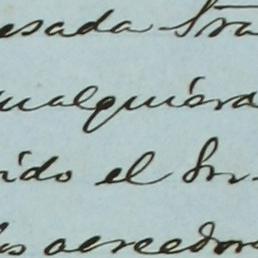 esada Sra
ualquiera
ido el Sr.
los acreedor